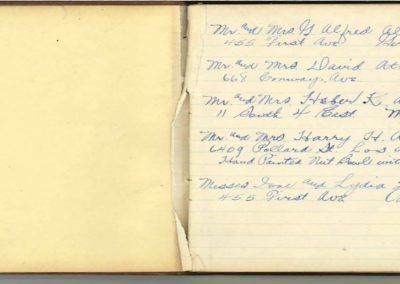 Mr. and Mrs G Alfred Al
455 First Ave
Mr. and Mrs David At
668 Conway Ave.
Mr. and Mrs. Heber K.
11 South 4 East. M
Mr. and Mrs. Harry H. A
6409 Pollard St. Los
Hand Painted Nut Bowl with
Misses Ione and Lydia
455 First Ave.